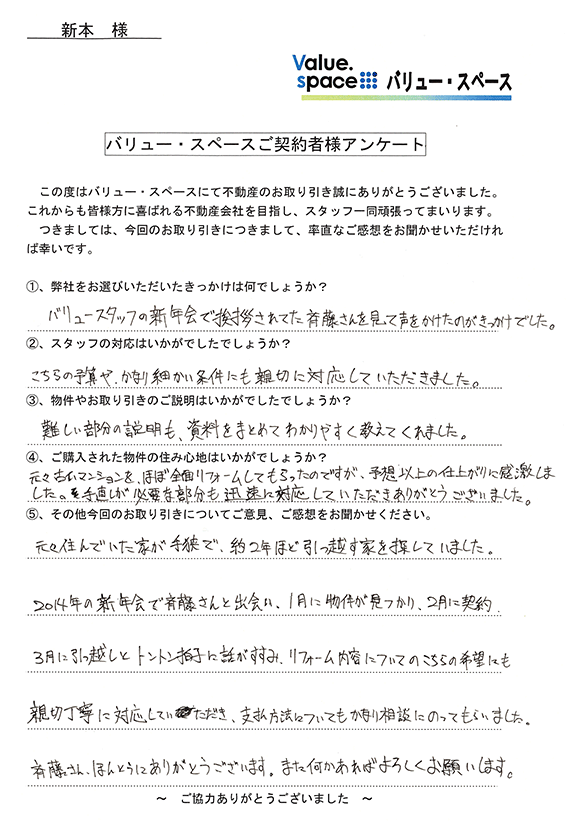 新本　様
Value.
space バリュー・スペース
バリュー・スペースご契約者様アンケート
この度はバリュー・スペースにて不動産のお取り引き誠にありがとうございました。
これからも皆様方に喜ばれる不動産会社を目指し、スタッフ一同頑張ってまいります。
つきましては、今回のお取り引きにつきまして、率直なご感想をお聞かせいただけれ
ば幸いです。
①、弊社をお選びいただいたきっかけは何でしょうか？
バリュースタッフの新年会で挨拶されてた斉藤さんを見て声をかけたのがきっかけでした。
②、スタッフの対応はいかがでしたでしょうか？
こちらの予算や、かなり細かい条件にも親切に対応していただきました。
③、物件やお取り引きのご説明はいかがでしたでしょうか？
難しい部分の説明も、資料をまとめてわかりやすく教えてくれました。
④、ご購入された物件の住み心地はいかがでしょうか？
元々古いマンションを、ほぼ全面リフォームしてもらったのですが、予想以上の仕上がりに感激しま
した。手直しが必要な部分も迅速に対応していただきありがとうございました。
⑤、その他今回のお取り引きについてご意見、ご感想をお聞かせください。
元々住んでいた家が手狭で、約2年ほど引っ越す家を探していました。
2014年の新年会で斉藤さんと出会い、1月に物件が見つかり、2月に契約
3月に引っ越しとトントン拍子に話がすすみ、リフォーム内容についてのこちらの希望にも
親切丁寧に対応していただき、支払方法についてもかなり相談にのってもらいました。
斉藤さん、ほんとうにありがとうございます。また何かあればよろしくお願いします。
～　ご協力ありがとうございました　～